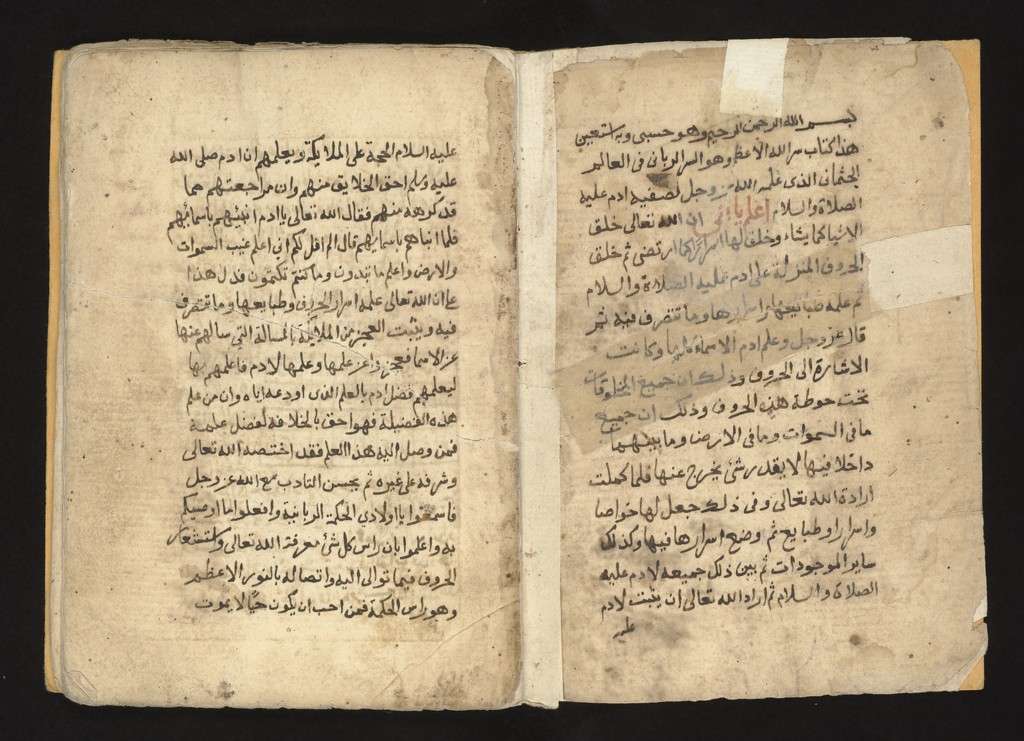 بسم الله الرحمن الرحيم وهو حسبى وبه استعين
هذا كتاب سر الله الاعظم وهو السر الربانى فى العالم
الجثمانى الذى علمه الله عز وجل لصفيه ادم عليه
الصلاة والسلام اعلم يا بنى ان الله تعالى خلق
الاشيا كما يشاء وخلق لها اسرارا كما ارتضى ثم خلق
الحروف المنزلة على ادم عليه الصلاة والسلام
ثم علمه طبايعها واسرارها وما تتصرف فيه ثم
قال عز وجل وعلم ادم الاسماء كلها وكانت
الاشارة الى الحروف وذلك ان جميع المخلوقات
تحت حوطة هذه الحروف وذلك ان جميع
مافى السموات ومافى الارض وما بينهما
داخلا فيها لا يقدر شئ يخرج عنها فلما كملت
ارادة الله تعالى وفى ذلك جعل لها خواصا
واسرارا وطبايع ثم وضع اسرارها فيها وكذلك
ساير الموجودات ثم بين ذلك جميعه لادم عليه
الصلاة والسلام ثم اراد الله تعالى ان يثبت لادم
عليه
عليه السلام الحجة على الملايكة ويعلمهم ان ادم صلى الله
عليه وسلم احق الخلايق منهم وان مراجعتهم مما
قد كرهه منهم فقال الله تعالى يا ادم انبئهم باسمائهم
فلما انباهم باسمايهم قال الم اقل لكم انى اعلم غيب السموات
والارض واعلم ما تبدون وما كنتم تكتمون فدل هذا
على ان الله تعالى علمه اسرار الحروف وطبايعها وما تتصرف
فيه ويثبت العجز من الملايكة بالمسالة التى سالهم عنها
عن الاسما فعجزوا عن علمها وعلمها لادم فاعلمهم بها
ليعلمهم فضل ادم بالعلم الذى اودعه اياه وان من علم
هذه الفضيلة فهو احق بالخلافة لفضل علمه
فمن وصل اليه هذا العلم فقد اختصه الله تعالى
وشرفه على غيره ثم يحسن التادب مع الله عز وجل
فاسمعوا يا اولادى الحكمة الربانية وافعلوا ما اوصيكم
به واعلموا بان راس كل شئ معرفة الله تعالى واستشعار
الحروف فيما توالى اليه واتصاله بالنور الاعظم
وهو راس الحكمة فمن احب ان يكون حيا لا يموت